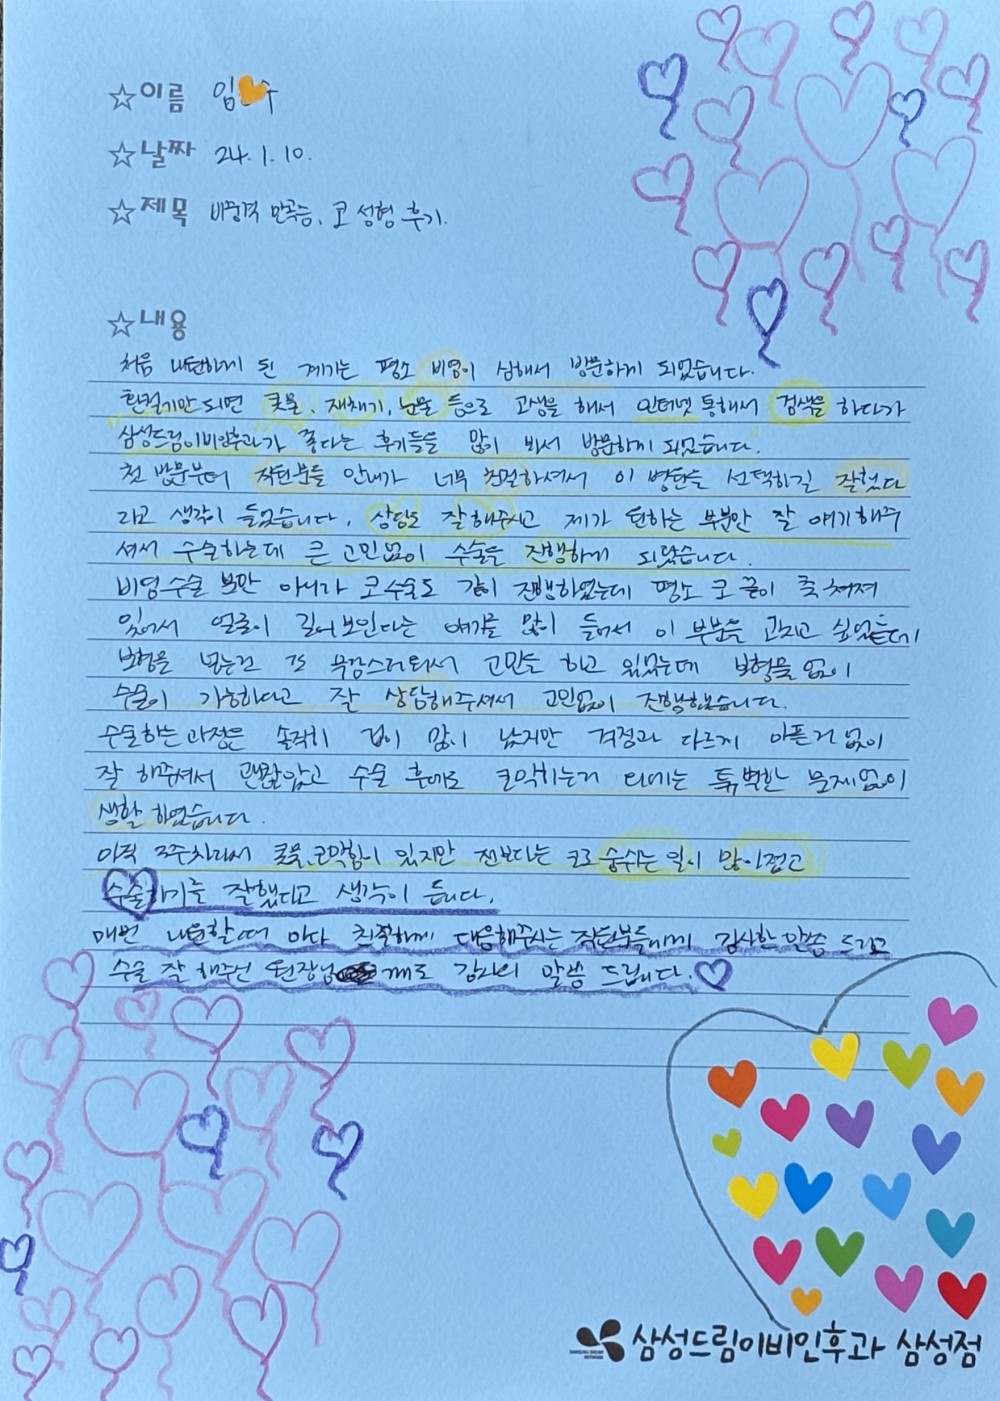 ☆이름 임 수
☆날짜 24. 1. 10.
☆제목 비중격 만곡증, 코 성형 후기.
☆내용
처음 내원하게 된 계기는 평소 비염이 심해서 방문하게 되었습니다.
환절기만 되면 콧물, 재채기, 눈물 등으로 고생을 해서 인터넷 통해서 검색을 하다가
삼성드림이비인후과가 좋다는 후기들을 많이 봐서 방문하게 되었습니다.
첫 방문부터 직원분들 안내가 너무 친절하셔서 이 병원을 선택하길 잘했다
라고 생각이 들었습니다. 상담도 잘 해주시고 제가 원하는 부분만 잘 얘기해주
셔서 수술하는데 큰 고민없이 수술을 진행하게 되었습니다.
비염수술 뿐만 아니라 코수술도 같이 진행하였는데 평소 코 끝이 축 쳐져
있어서 얼굴이 길어보인다는 얘기를 많이 들어서 이 부분을 고치고 싶었는데
보형물을 넣는건 또 부담스러워서 고민을 하고 있었는데 보형물 없이
수술이 가능하다고 잘 상담해주셔서 고민없이 진행했습니다.
수술하는 과정은 솔직히 겁이 많이 났지만 걱정과 다르게 아픈거 없이
잘 해주셔서 괜찮았고 수술 후에도 코막히는거 외에는 특별한 문제없이
생활 하였습니다.
아직 3주차라서 콧물, 코막힘이 있지만 전보다는 코로 숨쉬는 일이 많아졌고
수술하기를 잘했다고 생각이 듭니다.
매번 내원할때 마다 친절하게 대응해주시는 직원분들에게 감사한 말씀 드리고
수술 잘 해주신 원장님 께도 감사의 말씀 드립니다.♡
SAMSUNG DREAM NETWORK
삼성드림이비인후과 삼성점